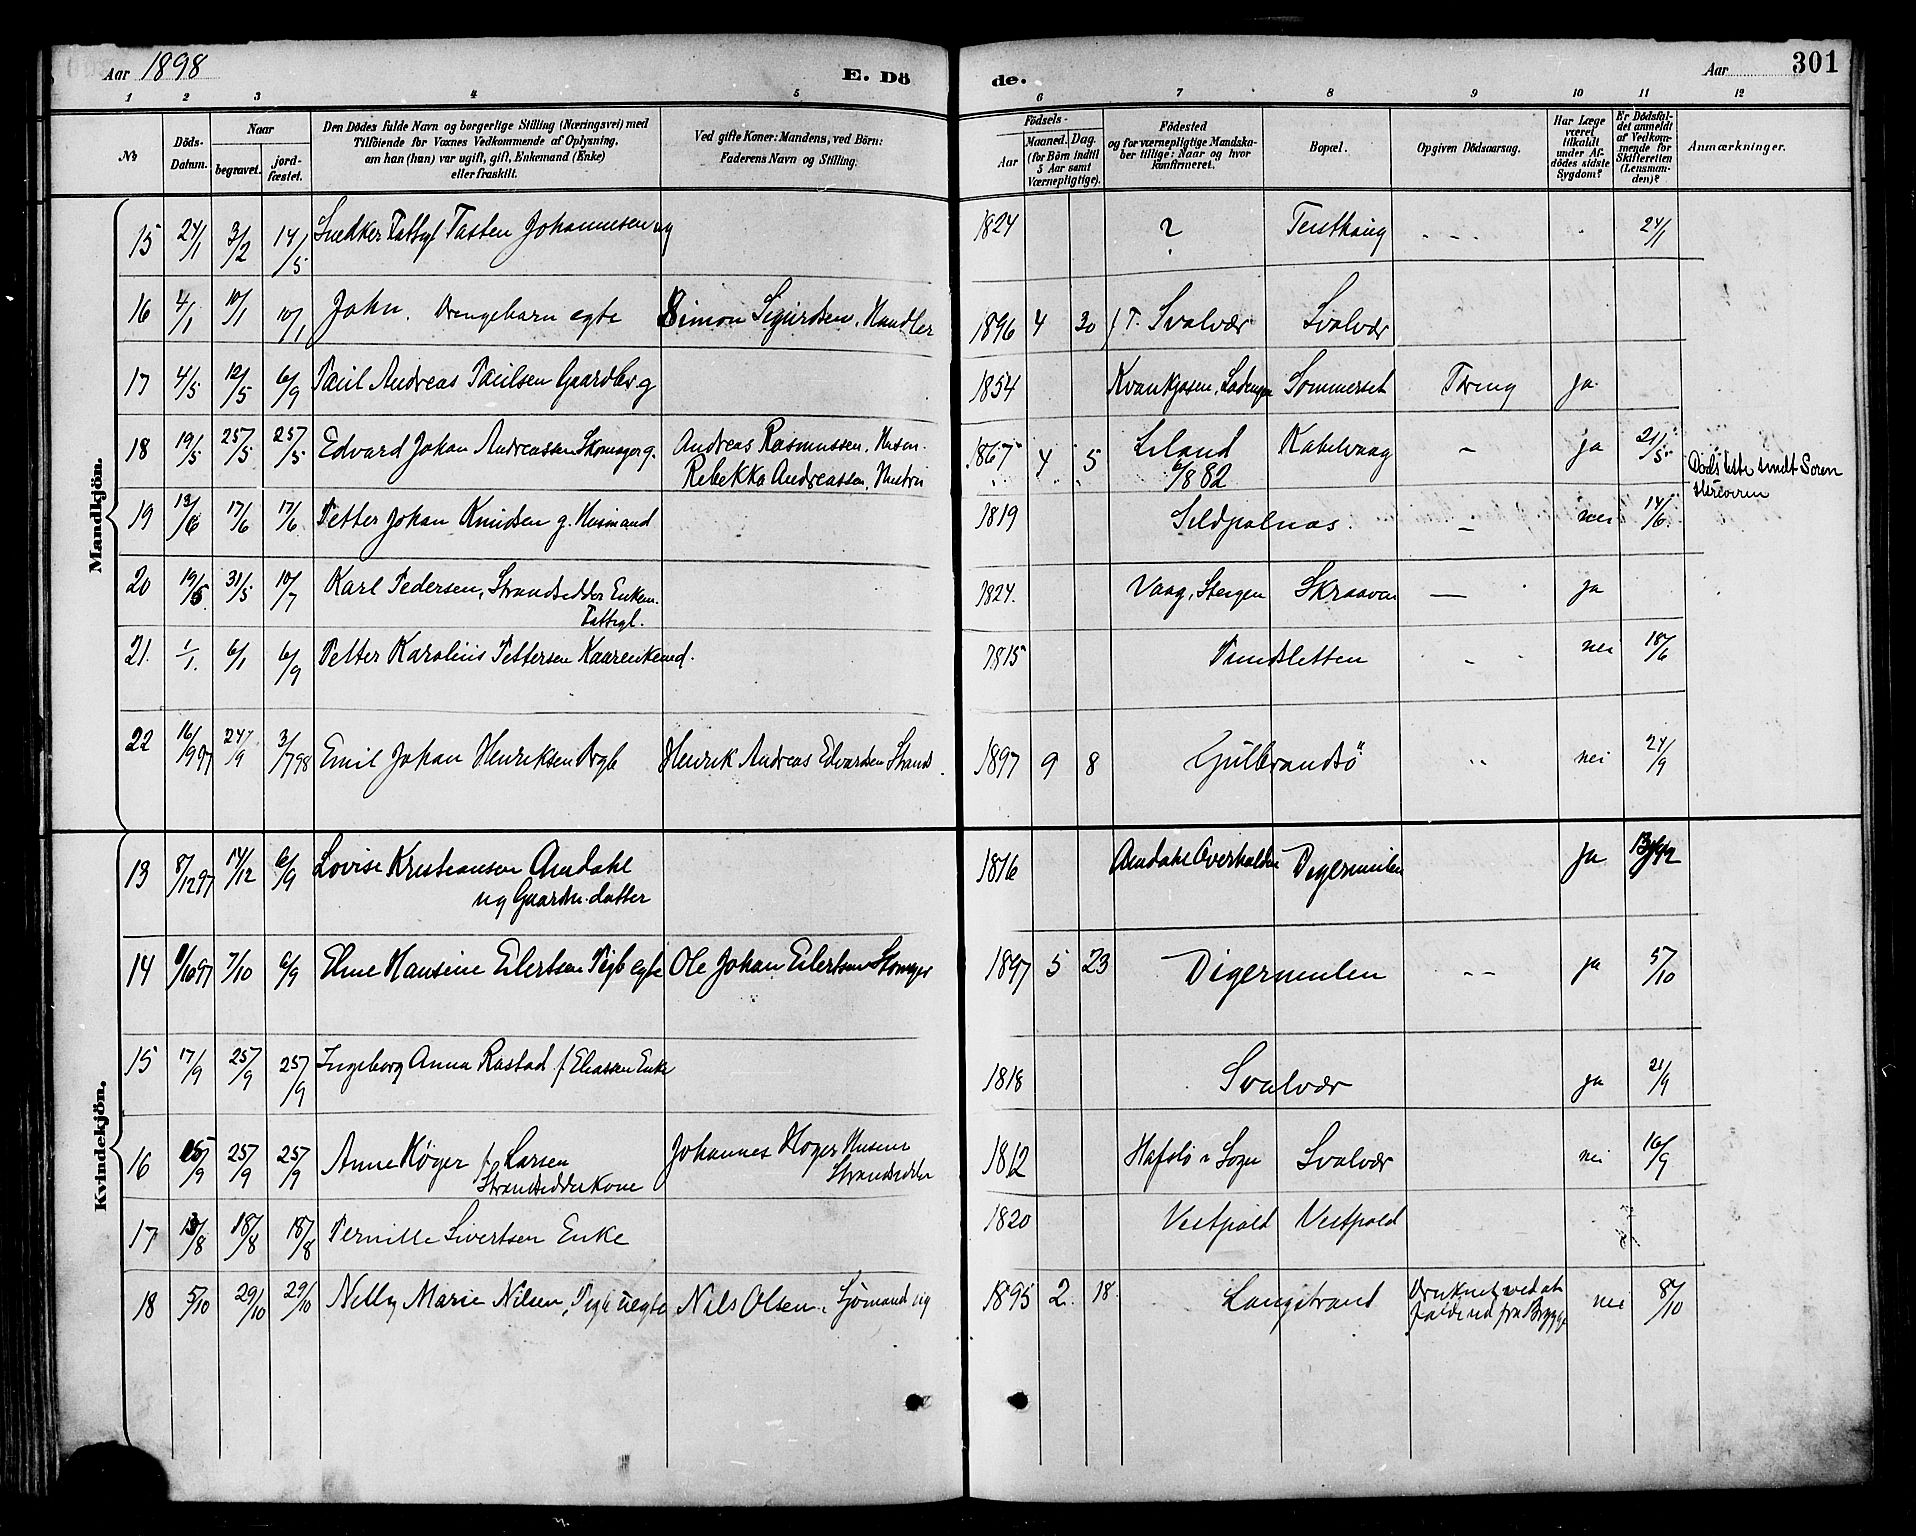 Aar 1898 E. Dö de. Aar 301
1 2 3 4 5 6 7 8 9 10 11 12
No
Döds-Datum.
Naar
begravet.
jord-fæstet.
Den Dödes fulde Navn og borgerlige Stilling (Næringsvei) med
Tilföiende for Voxnes Vedkommende af Oplysning,
om han (hun) var ugift, gift, Enkemand (Enke)
eller fraskilt.
Ved gifte Koner: Mandens, ved Börn:
Faderens Navn og Stilling.
Födsels-
Aar
Maaned. Dag.
(for Börn indtil
5 Aar samt
Værnepligtige).
Födested
og for værnepligtige Mandska-
ber tillige: Naar og hvor
konfirmeret.
Bopæl.
Opgiven Dödsaarsag.
Har Læge
været
tilkaldt
under Af-
dödes sidste
Sygdom?
Er Dödsfal-
det anmeldt
af Vedkom-
mende for
Skifteretten
(Lensman-
den)?
Anmærkninger.
Mandkjön.
15 24/1 3/2 14/5 Snedker Fattigl Tosten Johannesen ug 1824 ? 24/1
16 4/1 10/1 10/1 John. Drengebarn egte Simon Sigurdsen, Handler 1896 4 30 Svolvær Svolvær
17 4/5 12/5 6/9 Paul Andreas Paulsen Gaardbr g 1854 Sommerset Tæring ja.
18 19/5 25/5 25/5 Edvard Johan Andreassen Skomager g. Andreas Rasmussen, Husm. 1867 4 5 Liland Kabelvaag - ja 21/5
Rebekka Andreassen, Hustru 82
Dödsliste sendt Soren
19 13/6 17/6 17/6 Petter Johan Knudsen g. Husmand 1819 Sildpolnæs. - nei 14/6
20 19/5 31/5 10/7 Karl Pedersen, Strandsidder Enkem. 1824. Vaag, Steigen Skraaven — ja
Fattigl.
21. 1/1. 6/1 6/9 Petter Karolius Pettersen Kaarenkemd. 1815 Pundsletten nei 18/6
22 16/9 97 24/9 3/7 98 Emil Johan Henriksen Drgb Henrik Andreas Edvardsen Strands. 1897 9 8 Gulbrandsö nei 24/9
Kvindekjön.
13 8/12 97 14/12 6/9 Lovise Kristiansen Amdahl 1876 Amdahl Overhalden Digermulen ja
ug Gaardm. datter
14 97 7/10 6/9 Eline Hansine Eilertsen Pigb egte Ole Johan Eilertsen Skomager 1897 5 23 Digermulen -- ja 5/10
15 17/9 25/9 25/9 Ingeborg Anna Rastad f Eliassen Enke 1818 Svolvær ja 21/9
16 15/9 25/9 25/9 Anne Höger f. Larsen Johannes Höger Husm 1812 Hafslo i Sogn Svolvær nei 16/9
Strandsidderkone Strandsidder
17 13/8 18/8 18/8 Pernille Sivertsen Enke 1820 Vestpold Vestpold
18 5/10 29/10 29/10 Nelly Marie Nilsen, Pigb uegte Nils Olsen, Sjömand ug 1895 2. 18. Langstrand Druknet ved at nei 8/10
falde ud fra Brygge